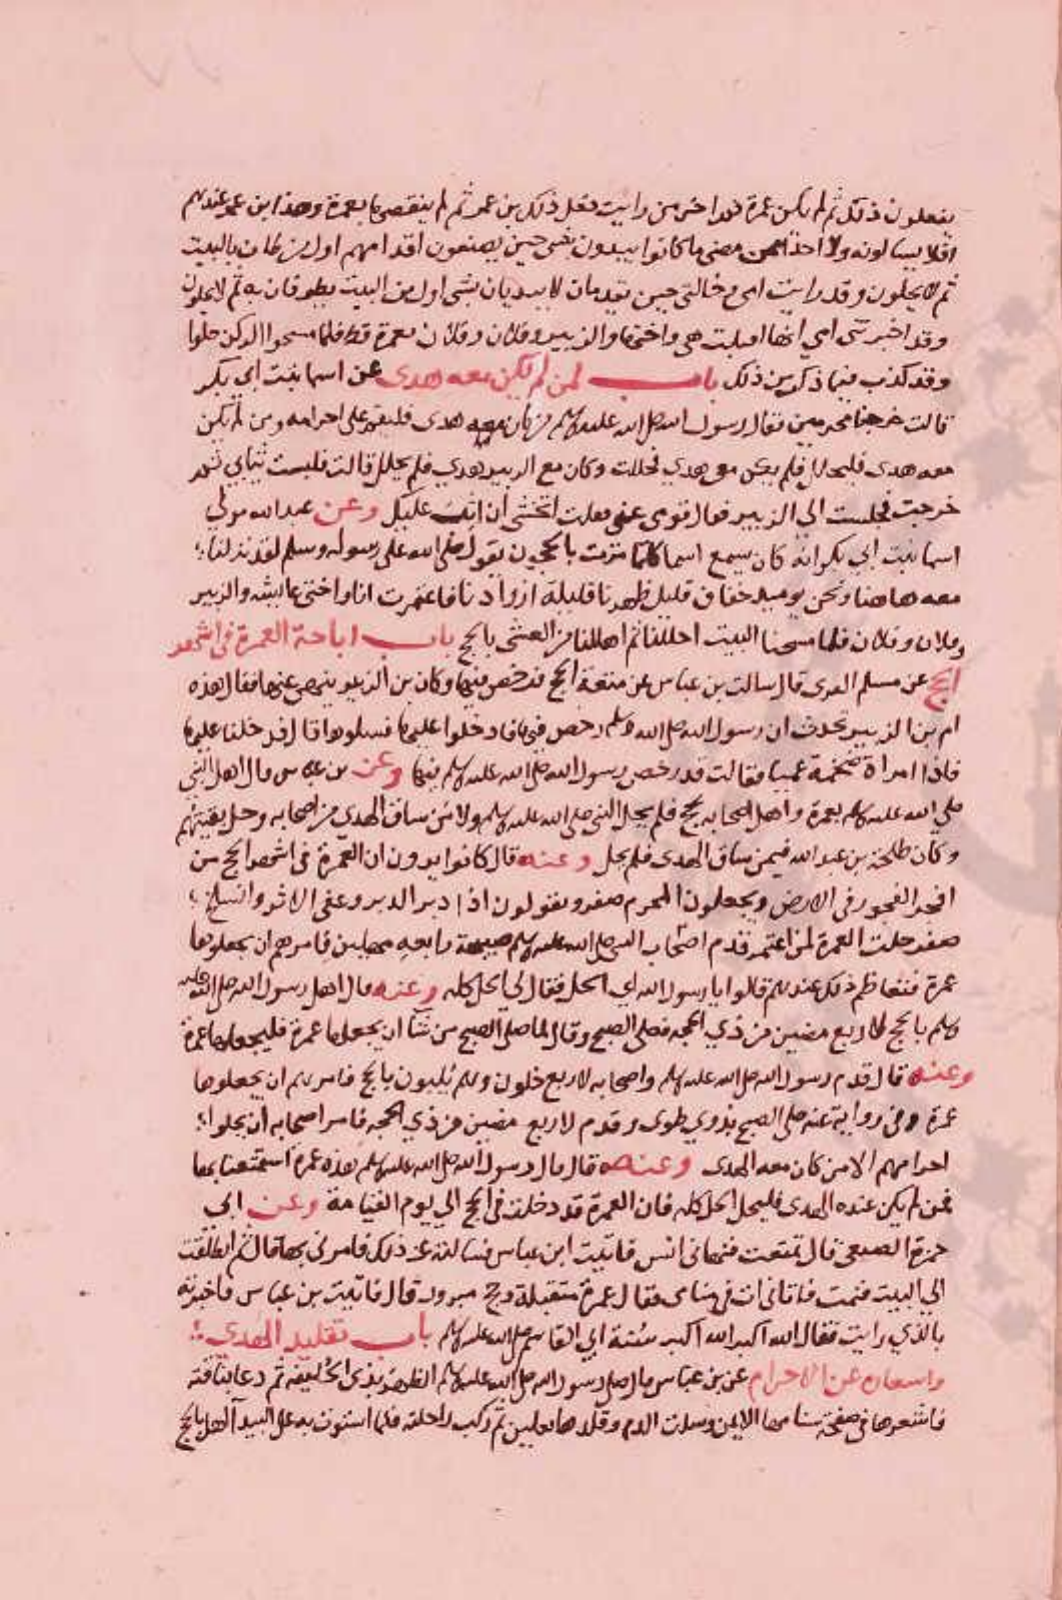 يفعلون ذلك ثم لم تكن عمرة ثم اخر من رايت فعل ذلك بن عمر ثم لم ينقضها بعمرة وهذا ابن عمر عندهم
افلا يسالونه ولا احد ممن مضى ما كانوا يبدون بشى حين يضعون اقدامهم اول من الطواف بالبيت
ثم لا يحلون وقد رايت امى وخالتى حين تقدمان لا تبديان بشى اول من البيت يطوفان به ثم لا يحلون
وقد اخبرتنى امي انها اقبلت هى واختها والزبير وفلان وفلان بعمرة قط فلما مسحوا الركن حلوا
وقد كذب فيما ذكر من ذلك باب لمن لم يكن معه هدى عن اسما بنت ابي بكر
قالت خرجنا محرمين فقال رسول الله صلى الله عليه وسلم من كان معه هدى فليقم على احرامه ومن لم يكن
معه هدى فليحلل فلم يكن معى هدي فحللت وكان مع الزبير هدي فلم يحلل قالت فلبست ثيابي ثم
خرجت فجلست الي الزبير فقال قومى عنى فقلت اتخشى أن اثب عليك وعن عبد الله مولى
اسما بنت ابي بكر انه كان يسمع اسما كلما مرت بالحجون تقول صلى الله على رسوله وسلم لقد نزلنا
معه هاهنا ونحن يوميذ خفاف قليل ظهرنا قليلة ازوادنا فاعتمرت انا واختى عايشه والزبير
وفلان وفلان فلما مسحنا البيت احللنا ثم اهللنا من العشى بالحج باب اباحة العمرة فى اشهر
الحج عن مسلم القرى قال سالت بن عباس عن متعة الحج فرخص فيها وكان بن الزبير ينهى عنها فقال هذه
ام بن الزبير تحدث ان رسول الله صلى الله عليه وسلم رخص فيها فادخلوا عليها فسلوها قال فدخلنا عليها
فاذا امراة ضخمة عميا فقالت قد رخص رسول الله صلى الله عليه وسلم فيها وعن بن عباس قال اهل النبى
صلى الله عليه وسلم بعمرة واهل اصحابه بحج فلم يحل النبى صلى الله عليه وسلم ولا من ساق الهدي من اصحابه وحل بقيتهم
وكان طلحة بن عبد الله فيمن ساق الهدى فلم يحل وعنه قال كانوا يرون ان العمرة فى اشهر الحج من
افجر الفجور فى الارض ويجعلون المحرم صفر ويقولون اذا دبر الدبر وعفى الاثر وانسلخ
صفر حلت العمرة لمن اعتمر فقدم اصحاب النبى صلى الله عليه وسلم صبيحة رابعه مهلين فامرهم ان يجعلوها
عمرة فتعاظم ذلك عندهم قالوا يا رسول الله اى الحل فقال لى الحل كله وعنه قال اهل رسول الله صلى الله عليه
وسلم بالحج لاربع مضين من ذي الحجه فصلى الصبح وقال لما صلى الصبح من شا ان يجعلها عمرة فليجعلها عمرة
وعنه قال قدم رسول الله صلى الله عليه وسلم واصحابه لاربع خلون وهم يلبون بالحج فامرهم ان يجعلوها
عمرة وفى رواية عنه صلى الصبح بذوي طوى وقدم لاربع مضين من ذي الحجه فامر اصحابه ان يحلوا
احرامهم الا من كان معه الهدى وعنه قال قال رسول الله صلى الله عليه وسلم هذه عمرة استمتعنا بها
فمن لم يكن عنده الهدى فليحل الحل كله فان العمرة قد دخلت فى الحج الي يوم القيامة وعن ابي
حمزة الضبعى قال تمتعت فنهانى انس فاتيت ابن عباس فسالته عن ذلك فامرنى بها قال ثم انطلقت
الي البيت فنمت فاتانى ات فى منامى فقال عمرة متقبلة وحج مبرور قال فاتيت بن عباس فاخبرته
بالذي رايت فقال الله اكبر الله اكبر سنة ابي القاسم صلى الله عليه وسلم باب تقليد الهدي
واشعاره عن الاحرام عن بن عباس قال صلى رسول الله صلى الله عليه وسلم الظهر بذى الحليفه ثم دعا بناقته
فاشعرها فى صفحة سنامها الايمن وسلت الدم وقلدها نعلين ثم ركب راحلته فلما استوت به على البيدا اهل بالحج